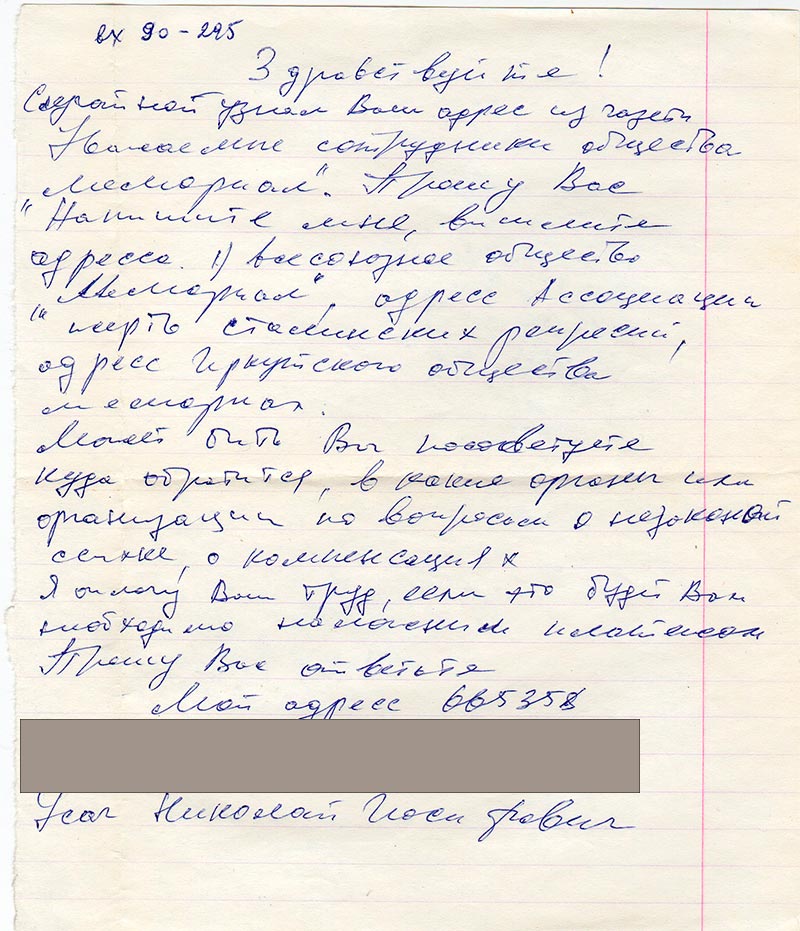 вх 90-295
Здравствуйте!
Случайной узнал Ваш адрес из газеты
Уважаемые сотрудники общества
Мемориал". Прошу Вас
"Напишите мне, вышлите
адресса. 1) всесоюзное общество
"Мемориал", адресс Ассоциации
"жертв сталинских репресий,
адресс Иркутского общества
мемориал.
Может быть Вы посоветуете
куда обратится, в какие органы или
организации по вопросам о незаконой
ссылке, о компенсациях
Я оплачу Ваш труд, если это будет Вам
необходимо наложеным платежом
Прошу Вас ответьте
Мой адресс 665358
Усач Николай Иосифович